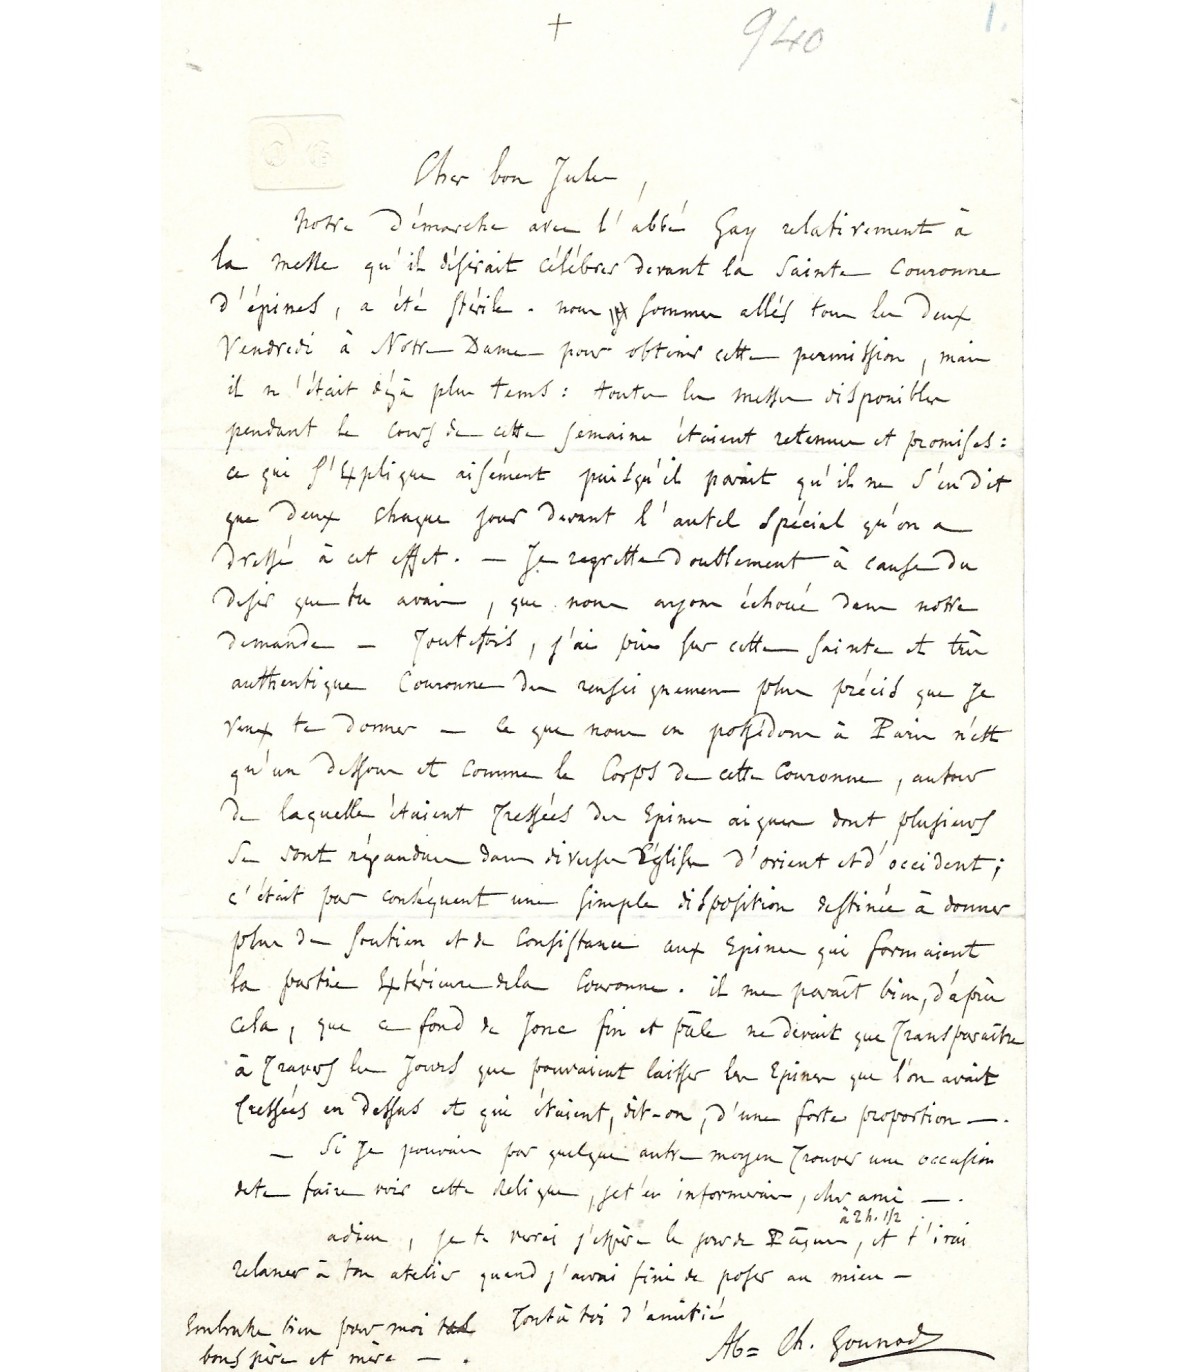 +
940
1.
Cher bon Jules,
Notre démarche avec l'abbé Gay relativement à
la messe qu'il désirait célébrer devant la Sainte Couronne
d'épines, a été stérile. nous sommes allés tous les deux
Vendredi à Notre Dame pour obtenir cette permission, mais
il n'était déjà plus tems : toutes les messes disponibles
pendant le cours de cette semaine étaient retenues et promises :
ce qui s'explique aisément puisqu'il parait qu'il ne s'en dit
que deux chaque jour devant l'autel spécial qu'on a
dressé à cet effet. — Je regrette doublement à cause du
desir que tu avais, que nous ayons échoué dans notre
demande — Toutefois, j'ai pris sur cette sainte et très
authentique Couronne des renseignemens plus précis que je
veux te donner — Ce que nous en possédons à Paris n'est
qu'un dessous et comme le Corps de cette Couronne, autour
de laquelle étaient tressées des Epines aigues dont plusieurs
se sont répandues dans diverses Églises d'orient et d'occident ;
c'était par conséquent une simple disposition destinée à donner
plus de soutien et de Consistance aux Epines qui formaient
la partie Extérieure de la Couronne. il me parait bien, d'après
cela, que ce fond de Jonc fin et pâle ne devait que Transparaître
à Travers les Jours que pouvaient laisser les Epines que l'on avait
tressées en dessus et qui étaient, dit-on, d'une forte proportion —.
— Si je pouvais par quelque autre moyen trouver une occasion
de te faire voir cette Relique, je t'en informerais, cher ami —.
adieu, je te verrai j'espère le jour de Pâques, à 2 h. 1/2 et t'irai
relancer à ton atelier quand j'aurai fini de poser au mien —
Tout à toi d'amitié
Embrasse bien pour moi tes
bons père et mère — .
Ch. Gounod